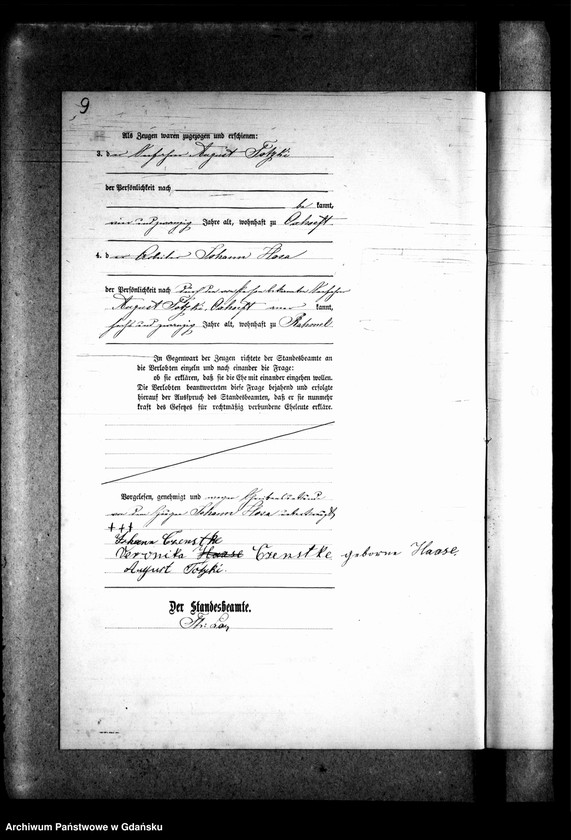 9
Als Zeugen waren zugezogen und erschienen:
3. der August Totzki
der Persönlichkeit nach
be kannt,
vier und zwanzig Jahre alt, wohnhaft zu Oxhöft
4. der Arbeiter Johann Hosa
der Persönlichkeit nach durch den
August Totzki, Oxhöft kannt,
sechs und zwanzig Jahre alt, wohnhaft zu Rahmel
In Gegenwart der Zeugen richtete der Standesbeamte an
die Verlobten einzeln und nach einander die Frage:
ob sie erklären, daß sie die Ehe mit einander eingehen wollen.
Die Verlobten beantworteten diese Frage bejahend und erfolgte
hierauf der Ausspruch des Standesbeamten, daß er sie nunmehr
kraft des Gesetzes für rechtmäßig verbundene Eheleute erkläre.
Vorgelesen, genehmigt und wegen Schreibensunkunde
von dem Zeugen Johann Hosa unterkreuzt
+++
Johann Czenstke
Veronika Haase Czenstke geborne Haase.
August Totzki.
Der Standesbeamte.
Archiwum Państwowe w Gdańsku